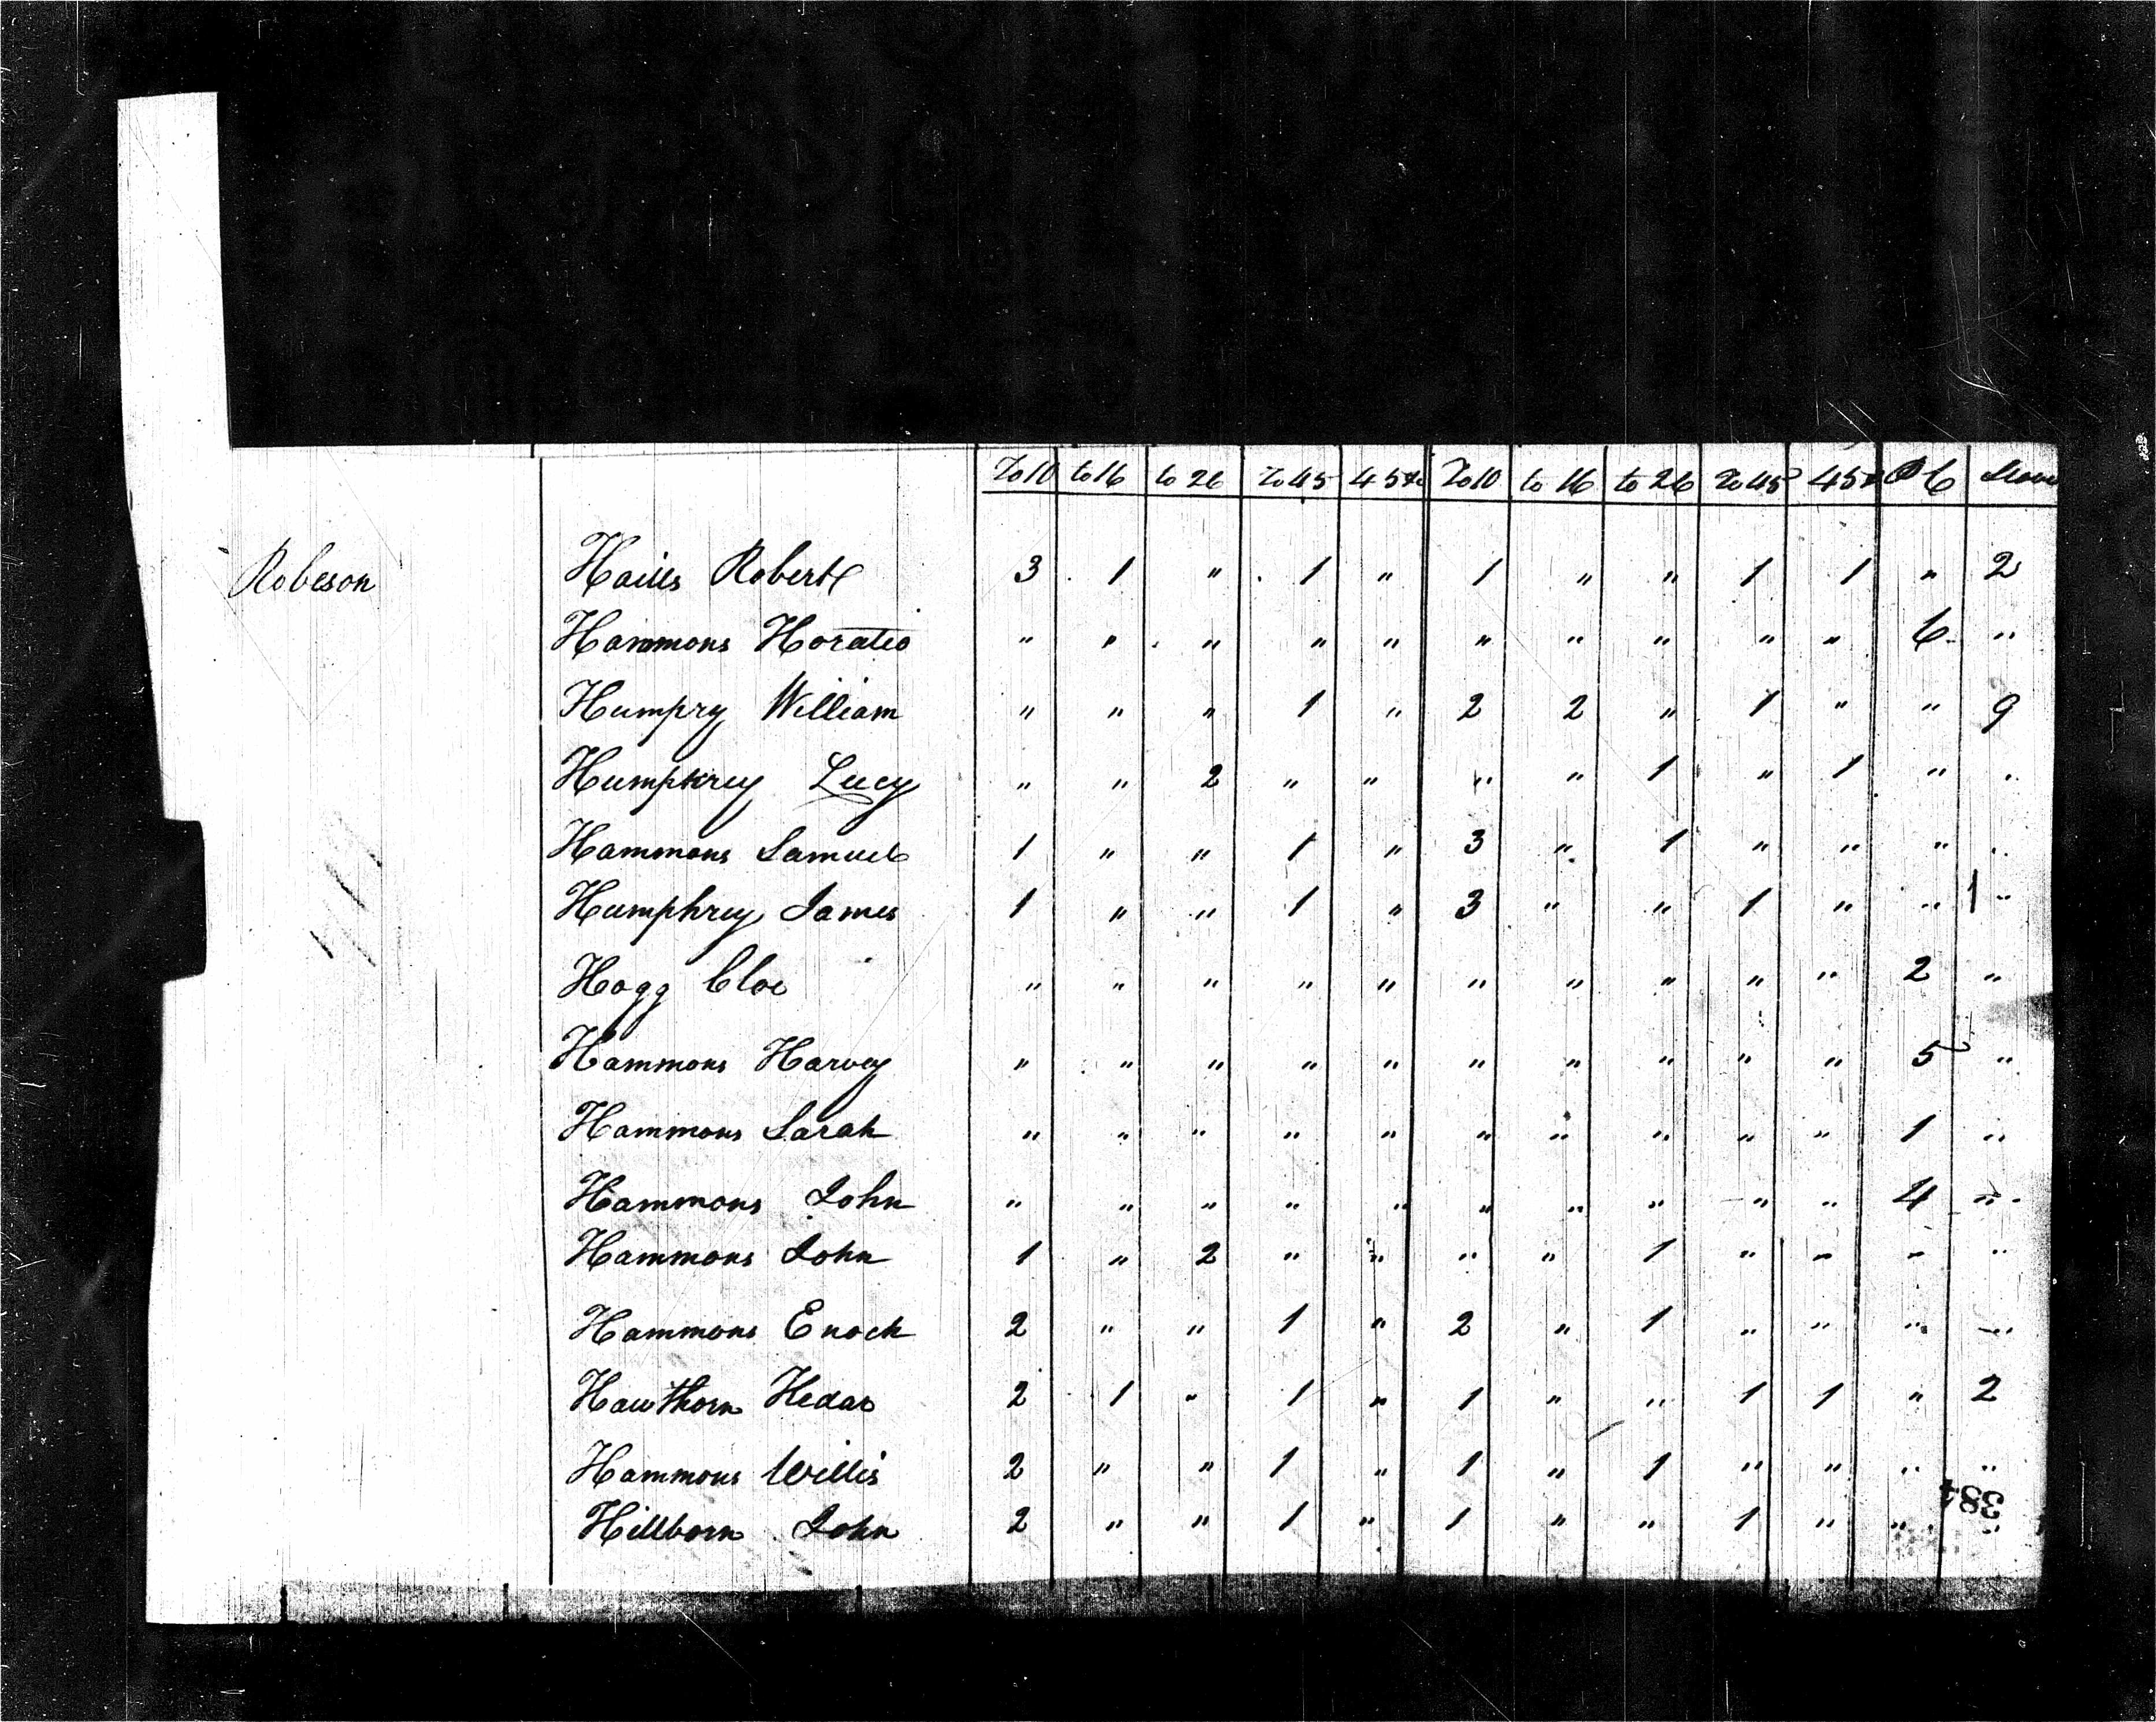 To 10 to 16 to 26 To 45 45 &c To 10 to 16 to 26 To 45 45 & O C Slaves
Robeson Hailes Robert 3 1 " 1 " 1 " " 1 1 " 2
Hammons Horatio " " " " " " " " " " 6 "
Humpry William " " " 1 " 2 2 " 1 " " 9
Humphrey Lucy " " 2 " " " " 1 " 1 " "
Hammons Samuel 1 " " 1 " 3 " 1 " " " "
Humphrey James 1 " " 1 " 3 " " 1 " " 1 "
Hogg Cloe " " " " " " " " " " 2 "
Hammons Harvey " " " " " " " " " " 5 "
Hammons Sarah " " " " " " " " " " 1 "
Hammons John " " " " " " " " " " 4 "
Hammons John 1 " 2 " " " " 1 " " " "
Hammons Enoch 2 " " 1 " 2 " 1 " " " "
Hawthorn Kedar 2 1 " 1 " 1 " " 1 1 " 2
Hammons Willis 2 " " 1 " 1 " 1 " " " "
Hillborn John 2 " " 1 " 1 " " 1 " " "
384